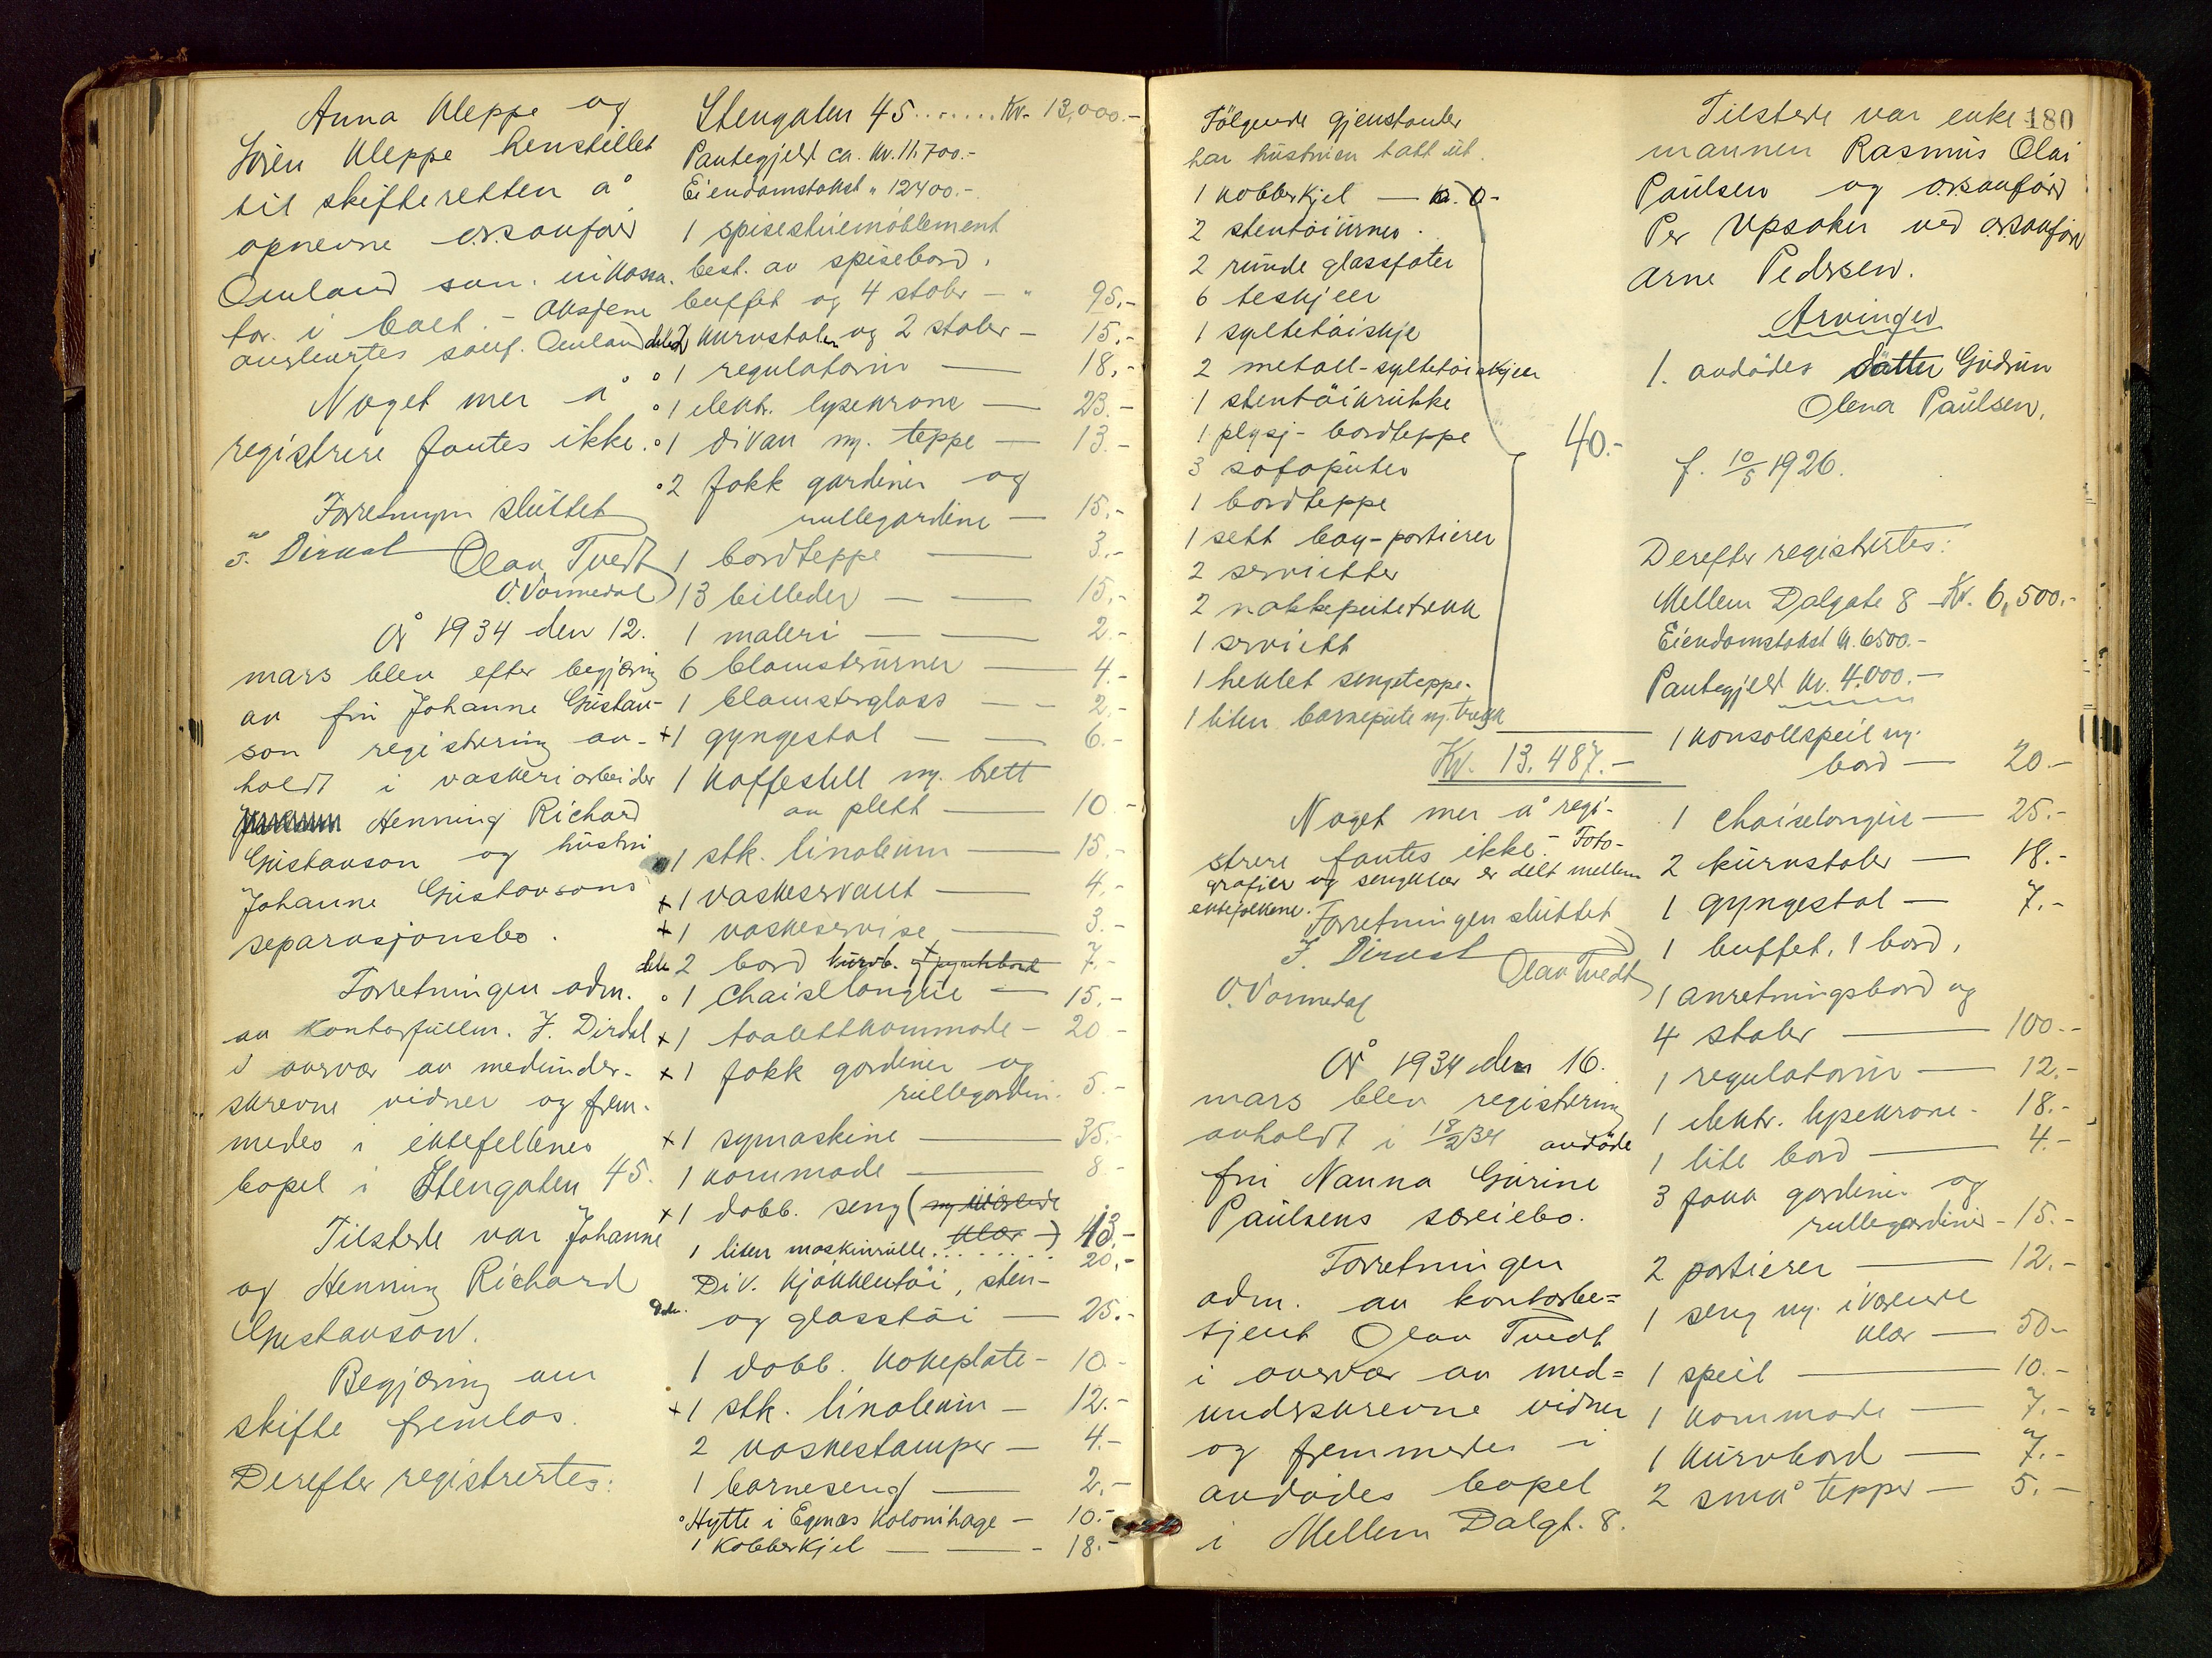 Anna Kleppe og
Sören Kleppe henstillet
til skifteretten å
opnevne o.r.sakfører
Omland som inkassa-
tor i boet. - Aksjene
utleveres sakf. Omland
Noget mer å
registrere fantes ikke.
Forretningen sluttet
J. Dirdal
Olav Tvedt
O. Vormedal
År 1934 den 12.
mars blev efter begjæring
av fru Johanne Gustav-
son registrering av-
holdt i vaskeriarbeider
Henning Richard
Gustavson og hustru
Johanne Gustavsons
separasjonsbo.
Forretningen adm.
av kontorfullm. J. Dirdal
i overvær av medunder-
skrevne vidner og frem-
medes i ektefellenes
bopel i Stengaten 45.
Tilstede var Johanne
og Henning Richard
Gustavson.
Begjæring om
skifte fremlas.
Derefter registrertes:
Stengaten 45 ....... Kr. 13,000.-
Pantegjeld ca. kr. 11.700.-
Eiendomstakst " 12400.-
1 spisestuemöblement
best. av spisebord,
buffet og 4 stoler - " 95.-
2 kurvstoler og 2 stoler - 15.-
1 regulatorur — 18.-
1 elektr. lysekrone — 23.-
1 divan m. teppe — 13.-
2 fakk gardiner og
rullegardine — 15.-
1 bordteppe — 3.-
13 billeder — 15.-
1 maleri — 2.-
6 blomsterurner — 4.-
1 blomsterglass — 2.-
+1 gyngestol — 6.-
1 kaffestell m. brett
av plett — 10.-
1 stk. linoleum — 15.-
+1 vaskeservant — 4.-
+1 vaskeservise — 3.-
2 bord kurvb. + pyntebord 7.-
1 chaiselongue — 15.-
+1 toalettkommode — 20.-
+1 fakk gardiner og
rullegardin. 5.-
+1 symaskine — 35.-
1 kommode — 8.-
+1 dobb. seng (m iværende
klær) 13.-
1 liten maskinrulle ........ 20.-
Div. kjökkentöi, sten-
og glasstöi — 25.-
1 dobb. kokeplate - 10.-
+1 stk. linoleum - 12.-
2 vaskestamper - 4.-
1 barneseng — 2.-
Hytte i Egenes Kolonihage - 10.-
1 kobberkjel — 18.-
Fölgende gjenstander
har hustruen tatt ut.
1 kobberkjel —
2 stentöiurner
2 runde glassfater
6 teskjeer
1 syltetöiskje
2 metall-syltetöiskjeer
1 stentöikrukke
1 plysj-bordteppe
3 sofaputer
1 bordteppe
1 sett boy-portierer
2 servietter
2 nakkeputetrekk
1 serviett
1 heklet sengeteppe.
1 liten barnepute m. trekk
40.-
Kr. 13.487.-
Noget mer å regi-
strere fantes ikke. - Foto-
grafier og sengklær er delt mellem
ektefolkene.
Forretningen sluttet
J. Dirdal
Olav Tvedt
O. Vormedal
År 1934 den 16.
mars blev registrering
avholdt i 18/2 34 avdöde
fru Nanna Gurine
Paulsens særeiebo.
Forretningen
adm. av kontorbe=
tjent Olav Tvedt
i overvær av med=
underskrevne vidner
og fremmedes i
avdödes bopel
i Mellem Dalgt. 8.
180
Tilstede var enke-
mannen Rasmus Olai
Paulsen og o.r.sakförer
Per Upsaker ved o.r.sakförer
Arne Pedersen.
Arvinger
1. avdödes datter Gudrun
Olena Paulsen,
f. 10/5 1926.
Derefter registrertes:
Mellem Dalgate 8 - Kr. 6,500.-
Eiendomstakst kr. 6500.-
Pantegjeld kr. 4.000.-
1 konsollspeil m.
bord — 20.-
1 chaiselongue — 25.-
2 kurvstoler — 18.-
1 gyngestol — 7.-
1 buffet, 1 bord,
1 anretningsbord og
4 stoler — 100.-
1 regulatorur — 12.-
1 elektr. lysekrone - 18.-
1 lite bord — 4.-
3 fakk gardiner og
rullegardiner - 15.-
2 portierer — 12.-
1 seng m. iværende
klær — 50.-
1 speil — 10.-
1 kommode — 7.-
1 kurvbord — 7.-
2 små tepper — 5.-